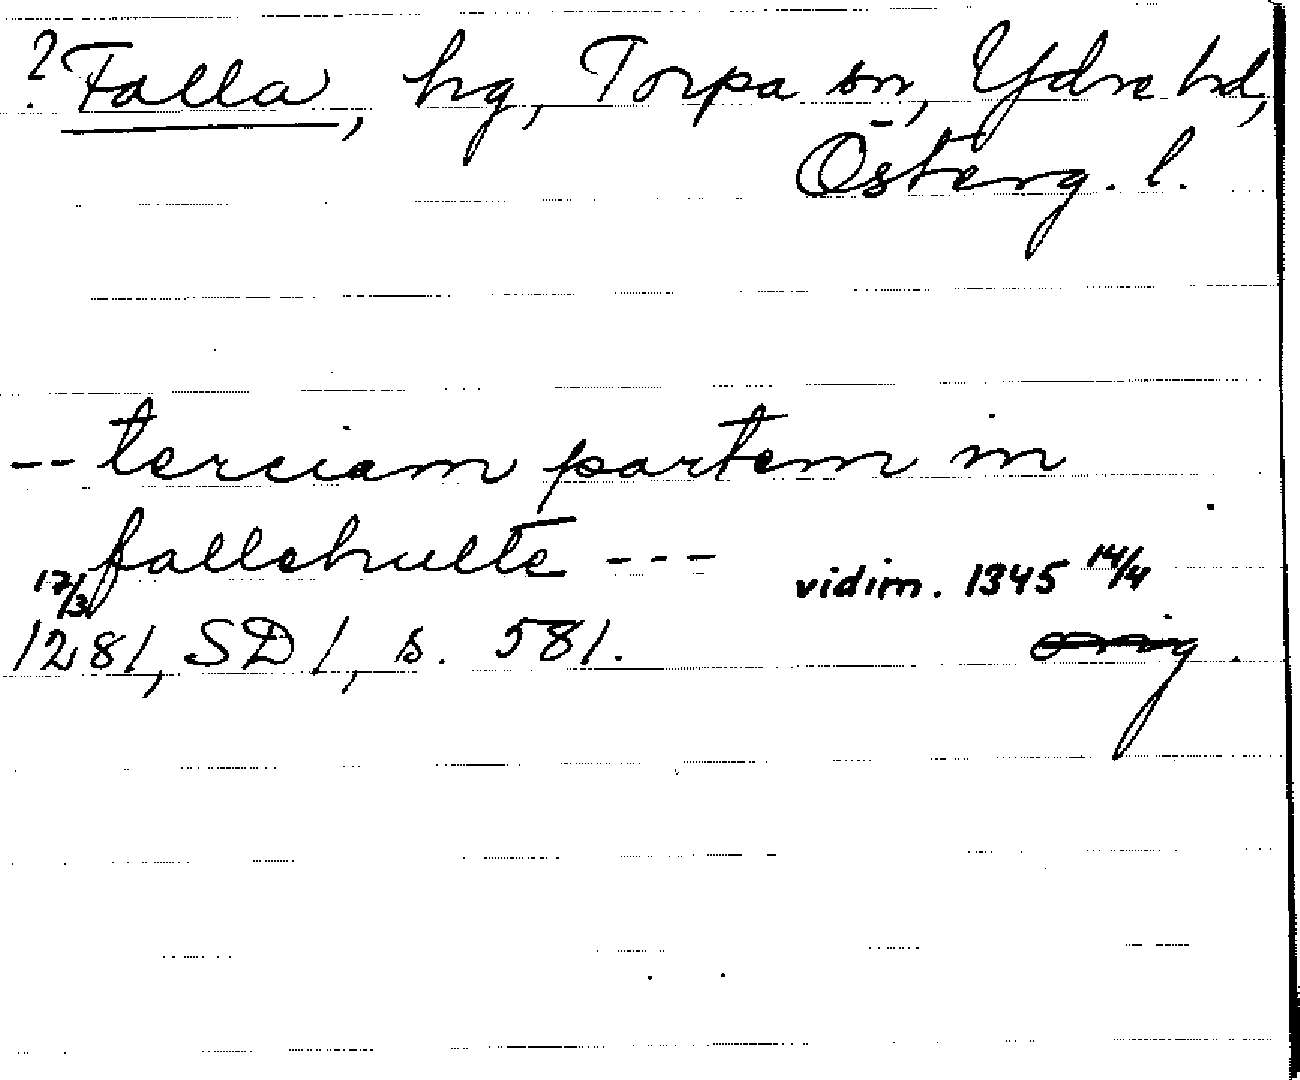 ? Falla, hg, Torpa sn, Ydre hd,
Österg. l.
-- terciam partem in
fallehulte ---
vidim. 1345 14/4
17/3
1281, SD 1, s. 581.
orig.